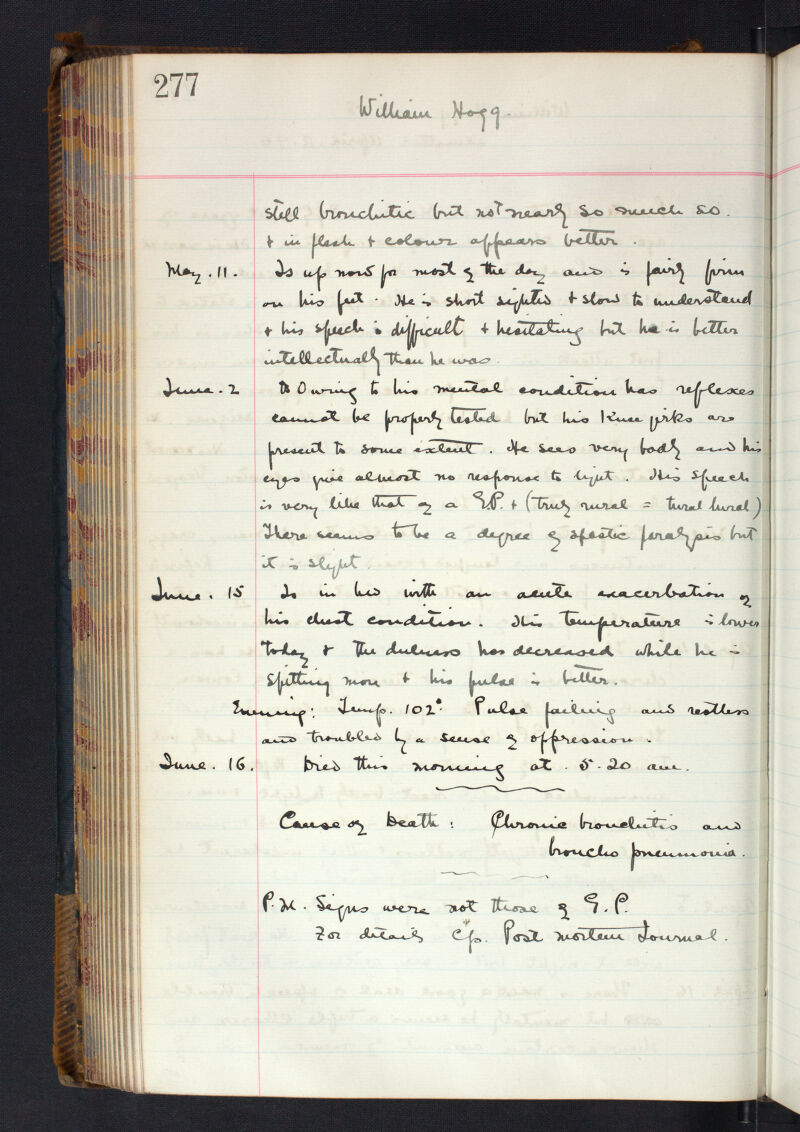 277
William Hogg.
still bronchitic but not nearly so much so.
& in flesh & colour appears better.
May. 11. Is up now for most of the day and is fairly firm
on his feet. He is short sighted & slow to understand
& his speech is difficult & hesitating but he is better
intellectually than he was.
June. 2 Owing to his mental condition his reflexes
cannot be properly tested but his knee jerks are
present to some extent. He sees very badly and his
eyes give almost no response to light. His speech
is very like that of a G.P. & (truly rural = tural lural)
There seems to be a degree of spastic paralysis but
it is slight.
June. 15 Is in bed with an acute exacerbation of
his chest condition. His temperature is lower
today & the dulness has decreased while he is
spitting more & his pulse is better.
Evening: Temp. 102°. Pulse failing and restless
and troubled by a sense of oppression.
June. 16. Died this morning at 5.20 am.
Cause of Death: Chronic bronchitis and
broncho pneumonia.
P.M. Signs were not those of G.P.
For details Cp. Post mortem Journal.